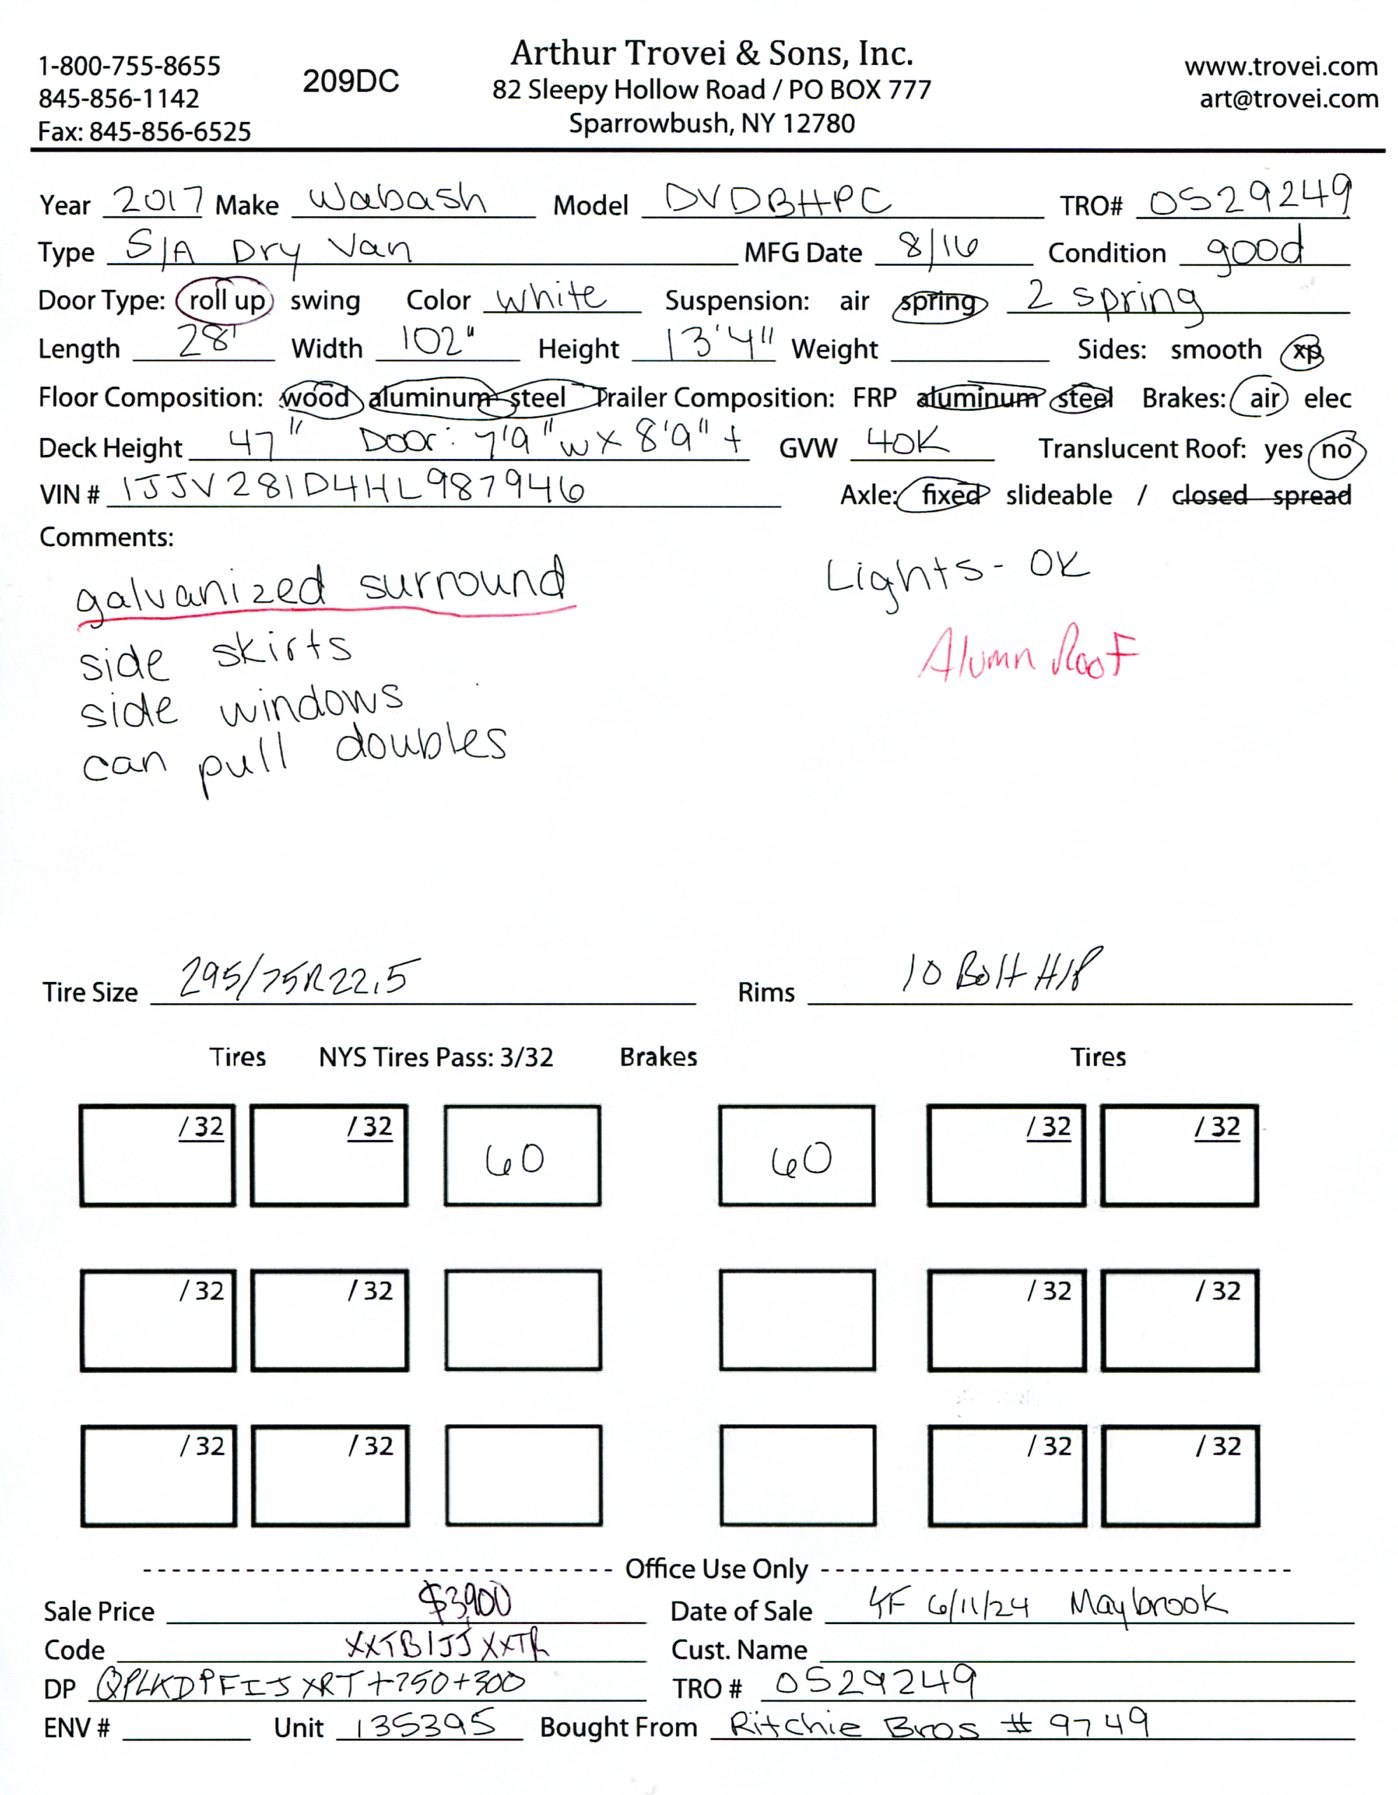 1-800-755-8655
845-856-1142
Fax: 845-856-6525
209DC
Arthur Trovei & Sons, Inc.
82 Sleepy Hollow Road / PO BOX 777
Sparrowbush, NY 12780
www.trovei.com
art@trovei.com
Year 2017 Make Wabash Model DVDBHPC TRO# 0529249
Type S/A Dry Van MFG Date 8/16 Condition good
Door Type: roll up swing Color white Suspension: air spring 2 spring
Length 28' Width 102" Height 13'4" Weight Sides: smooth xp
Floor Composition: wood aluminum steel Trailer Composition: FRP aluminum steel Brakes: air elec
Deck Height 47" Door: 7'9" w x 8'9" + GVW 40K Translucent Roof: yes no
VIN # 1JJV281D4HL987946 Axle: fixed slideable / closed spread
Comments:
galvanized surround
side skirts
side windows
can pull doubles
Lights - OK
Alumn Roof
Tire Size 295/75R22.5 Rims 10 Bolt H/P
Tires NYS Tires Pass: 3/32 Brakes Tires
/32 /32 60 60 /32 /32
/32 /32 /32 /32
/32 /32 /32 /32
Office Use Only
Sale Price $3,900 Date of Sale TF 6/11/24 Maybrook
Code XXTBIJJXXTR Cust. Name
DP QPLKDPFIJXRT+750+300 TRO # 0529249
ENV # Unit 135395 Bought From Ritchie Bros # 9749